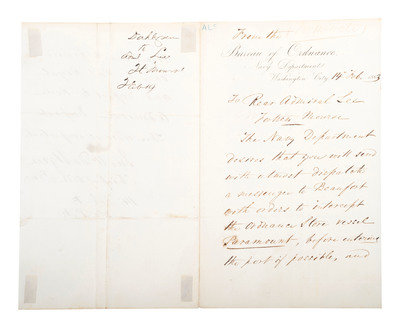 Dahlgren
to
Adl Lee
Ft Monroe
Feby 14
ALS
From the
Bureau of Ordnance
Navy Department
Washington City 14 Feb 1863
To Rear Admiral Lee
Fortress Monroe
The Navy Department
desires that you will send
with utmost dispatch
a messenger to Beaufort
with orders to intercept
the Ordnance Store vessel
Paramount, before entering
the port if possible, and